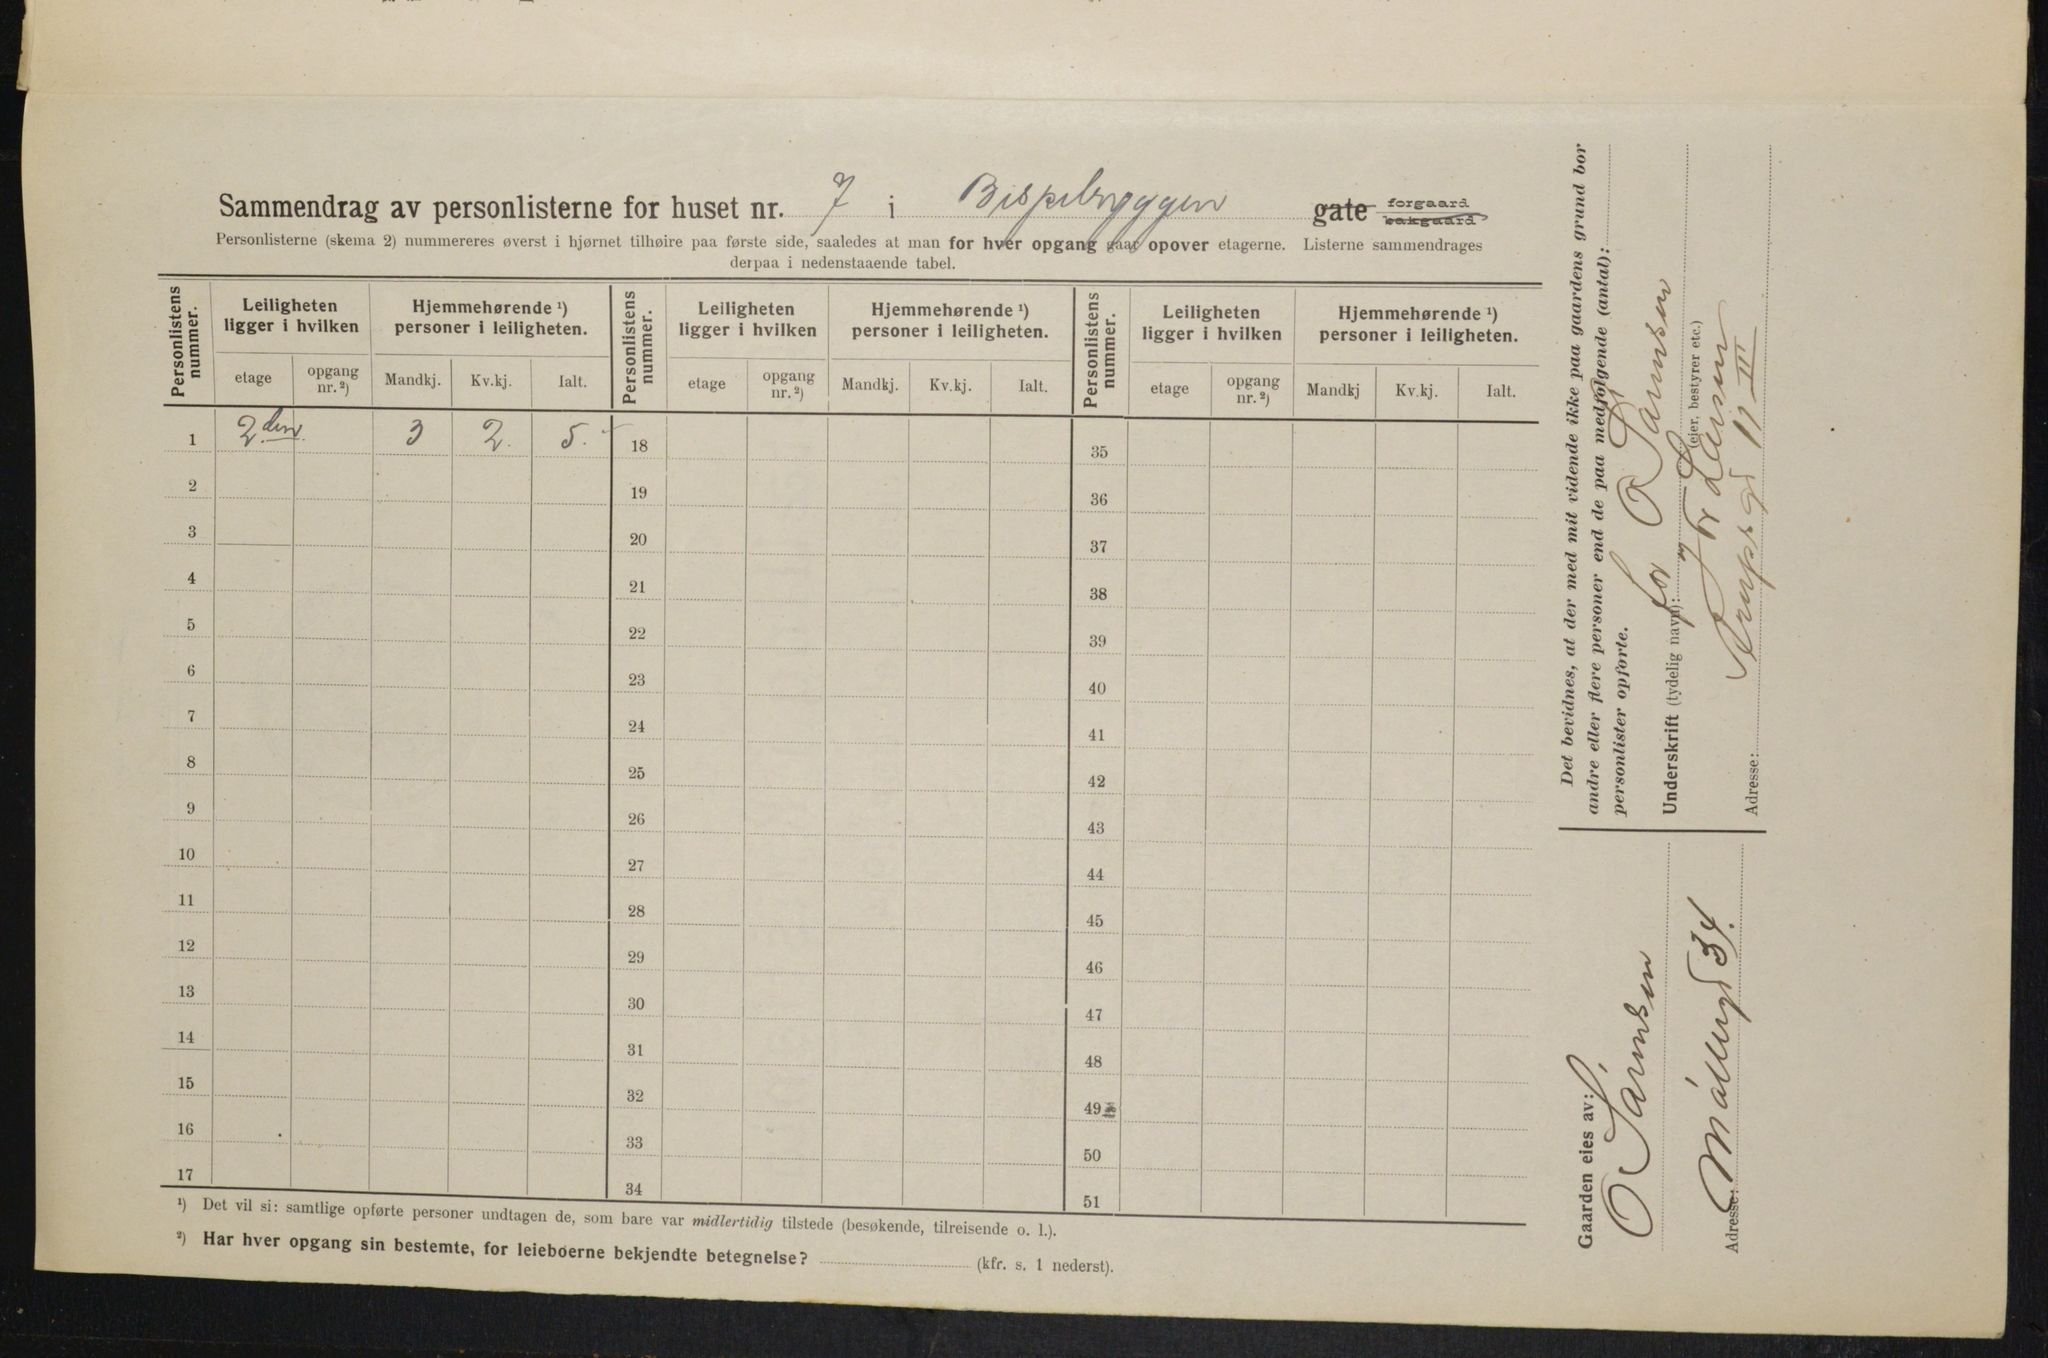 Sammendrag av personlisterne for huset nr. 7 i Bispebryggen gate forgaard bakgaard
Personlisterne (skema 2) nummereres øverst i hjørnet tilhøire paa første side, saaledes at man for hver opgang gaar opover etagerne. Listerne sammendrages
derpaa i nedenstaaende tabel.
Personlistens nummer. Leiligheten ligger i hvilken Hjemmehørende ¹) personer i leiligheten. Personlistens nummer. Leiligheten ligger i hvilken Hjemmehørende ¹) personer i leiligheten. Personlistens nummer. Leiligheten ligger i hvilken Hjemmehørende ¹) personer i leiligheten.
etage opgang nr. ²) Mandkj. Kv.kj. Ialt. etage opgang nr. ²) Mandkj. Kv.kj. Ialt. etage opgang nr. ²) Mandkj Kv.kj. Ialt.
1 2den 3 2. 5. 18 35
2 19 36
3 20 37
4 21 38
5 22 39
6 23 40
7 24 41
8 25 42
9 26 43
10 27 44
11 28 45
12 29 46
13 30 47
14 31 48
15 32 49
16 33 50
17 34 51
¹) Det vil si: samtlige opførte personer undtagen de, som bare var midlertidig tilstede (besøkende, tilreisende o. l.).
²) Har hver opgang sin bestemte, for leieboerne bekjendte betegnelse? (kfr. s. 1 nederst).
Det bevidnes, at der med mit vidende ikke paa gaardens grund bor
andre eller flere personer end de paa medfølgende (antal):
personlister opførte.
for O
Underskrift (tydelig navn):
(eier, bestyrer etc.)
Adresse: 11 III
Gaarden eies av:
O
Adresse: 34.